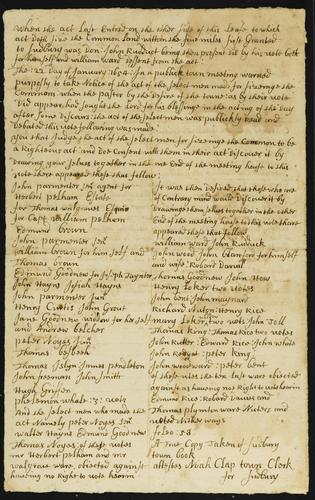 When the act Last Entred on the other side of this Leafe to which
act Doth size the Common Land within the five miles first Granted
to Sudbury was Don: John Rudduct being then present did by his vote both
for himself and william ward Dissent from the act:
The: 22 Day of January: 1654: In a publick town meeting warned
purposly to take Notice of the act of the select men made for sizeenge the
Common, when the pastor by the desire of the town: as by their vote
Did appear, had sought the Lord for his blessinge in the acting of the Day
after some Discours: the act of the select men was publickly read and
Debated this vote following was made
you that Judge the act of the select men for sizeenge the Common to be
a Righteous act: and Doe Consent with them in their act Discover it by
Drawing your selves together in the one End of the meeting house to this
vote there appeared these that follow:
John parmenter sen agent for
Herbert pelham Esq
for Thomas walgrave Esquir
for Capt William pelham
Edmund Brown
John parmenter sen
william Brown for him self and
Thomas brown
Edmund Goodnow for Joseph Taynter
John Haynes Josiah Hayne
John parmenter Jun
Henry Curtis John Grout
Jane Goodnow widow for her self
and Andrew belcher
peter Noyes Jun
Thomas besbech
Thomas Joslyn James pendleton
John freeman John Smith
Hugh Griffen
philemon whale: 23: vots
And the select men who made the
act Namely peter Noyes sen
walter Hayne Edmund Goodnow
Thomas Noyes: of these votes
mr Herbert pelham and mr
walgrave were objected against
having no Right to vote hearin
It was then Desired that those who are
of Contrary mind would Discover it by
Drawing them selves together in the other
End of the meeting house to this vote there
appeared these that follow
william ward John Rudduck
John wood John blanford for himself
and wife Robert Darnill
Thomas Goodnow John How
Henry Loker two votes
John bent John maynard
Richard Newton Henry Rice
mary Loker two vots John Toll
Thomas king: Thomas Rice two votes
John Rutter: Edward Rice John white
John Redyat: peter king
John woodward: peter bent
of these votes the ten last were objected
against as having no Right to vote hearin
Edmund Rice: Robard Daves and
Thomas plympton ware Neters and
voted Nither ways
folio: 58
A true Copy Taken of Sudbury
town book
attests Noah Clap town Clerk
for Sudbury